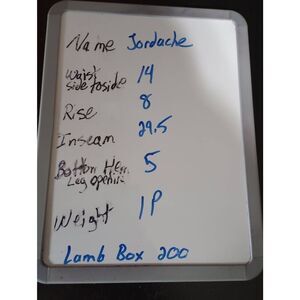 Name Jordache
waist side to side 14
Rise 8
Inseam 29.5
Bottom Hem Leg opening 5
Weight 1P
Lamb Box 200